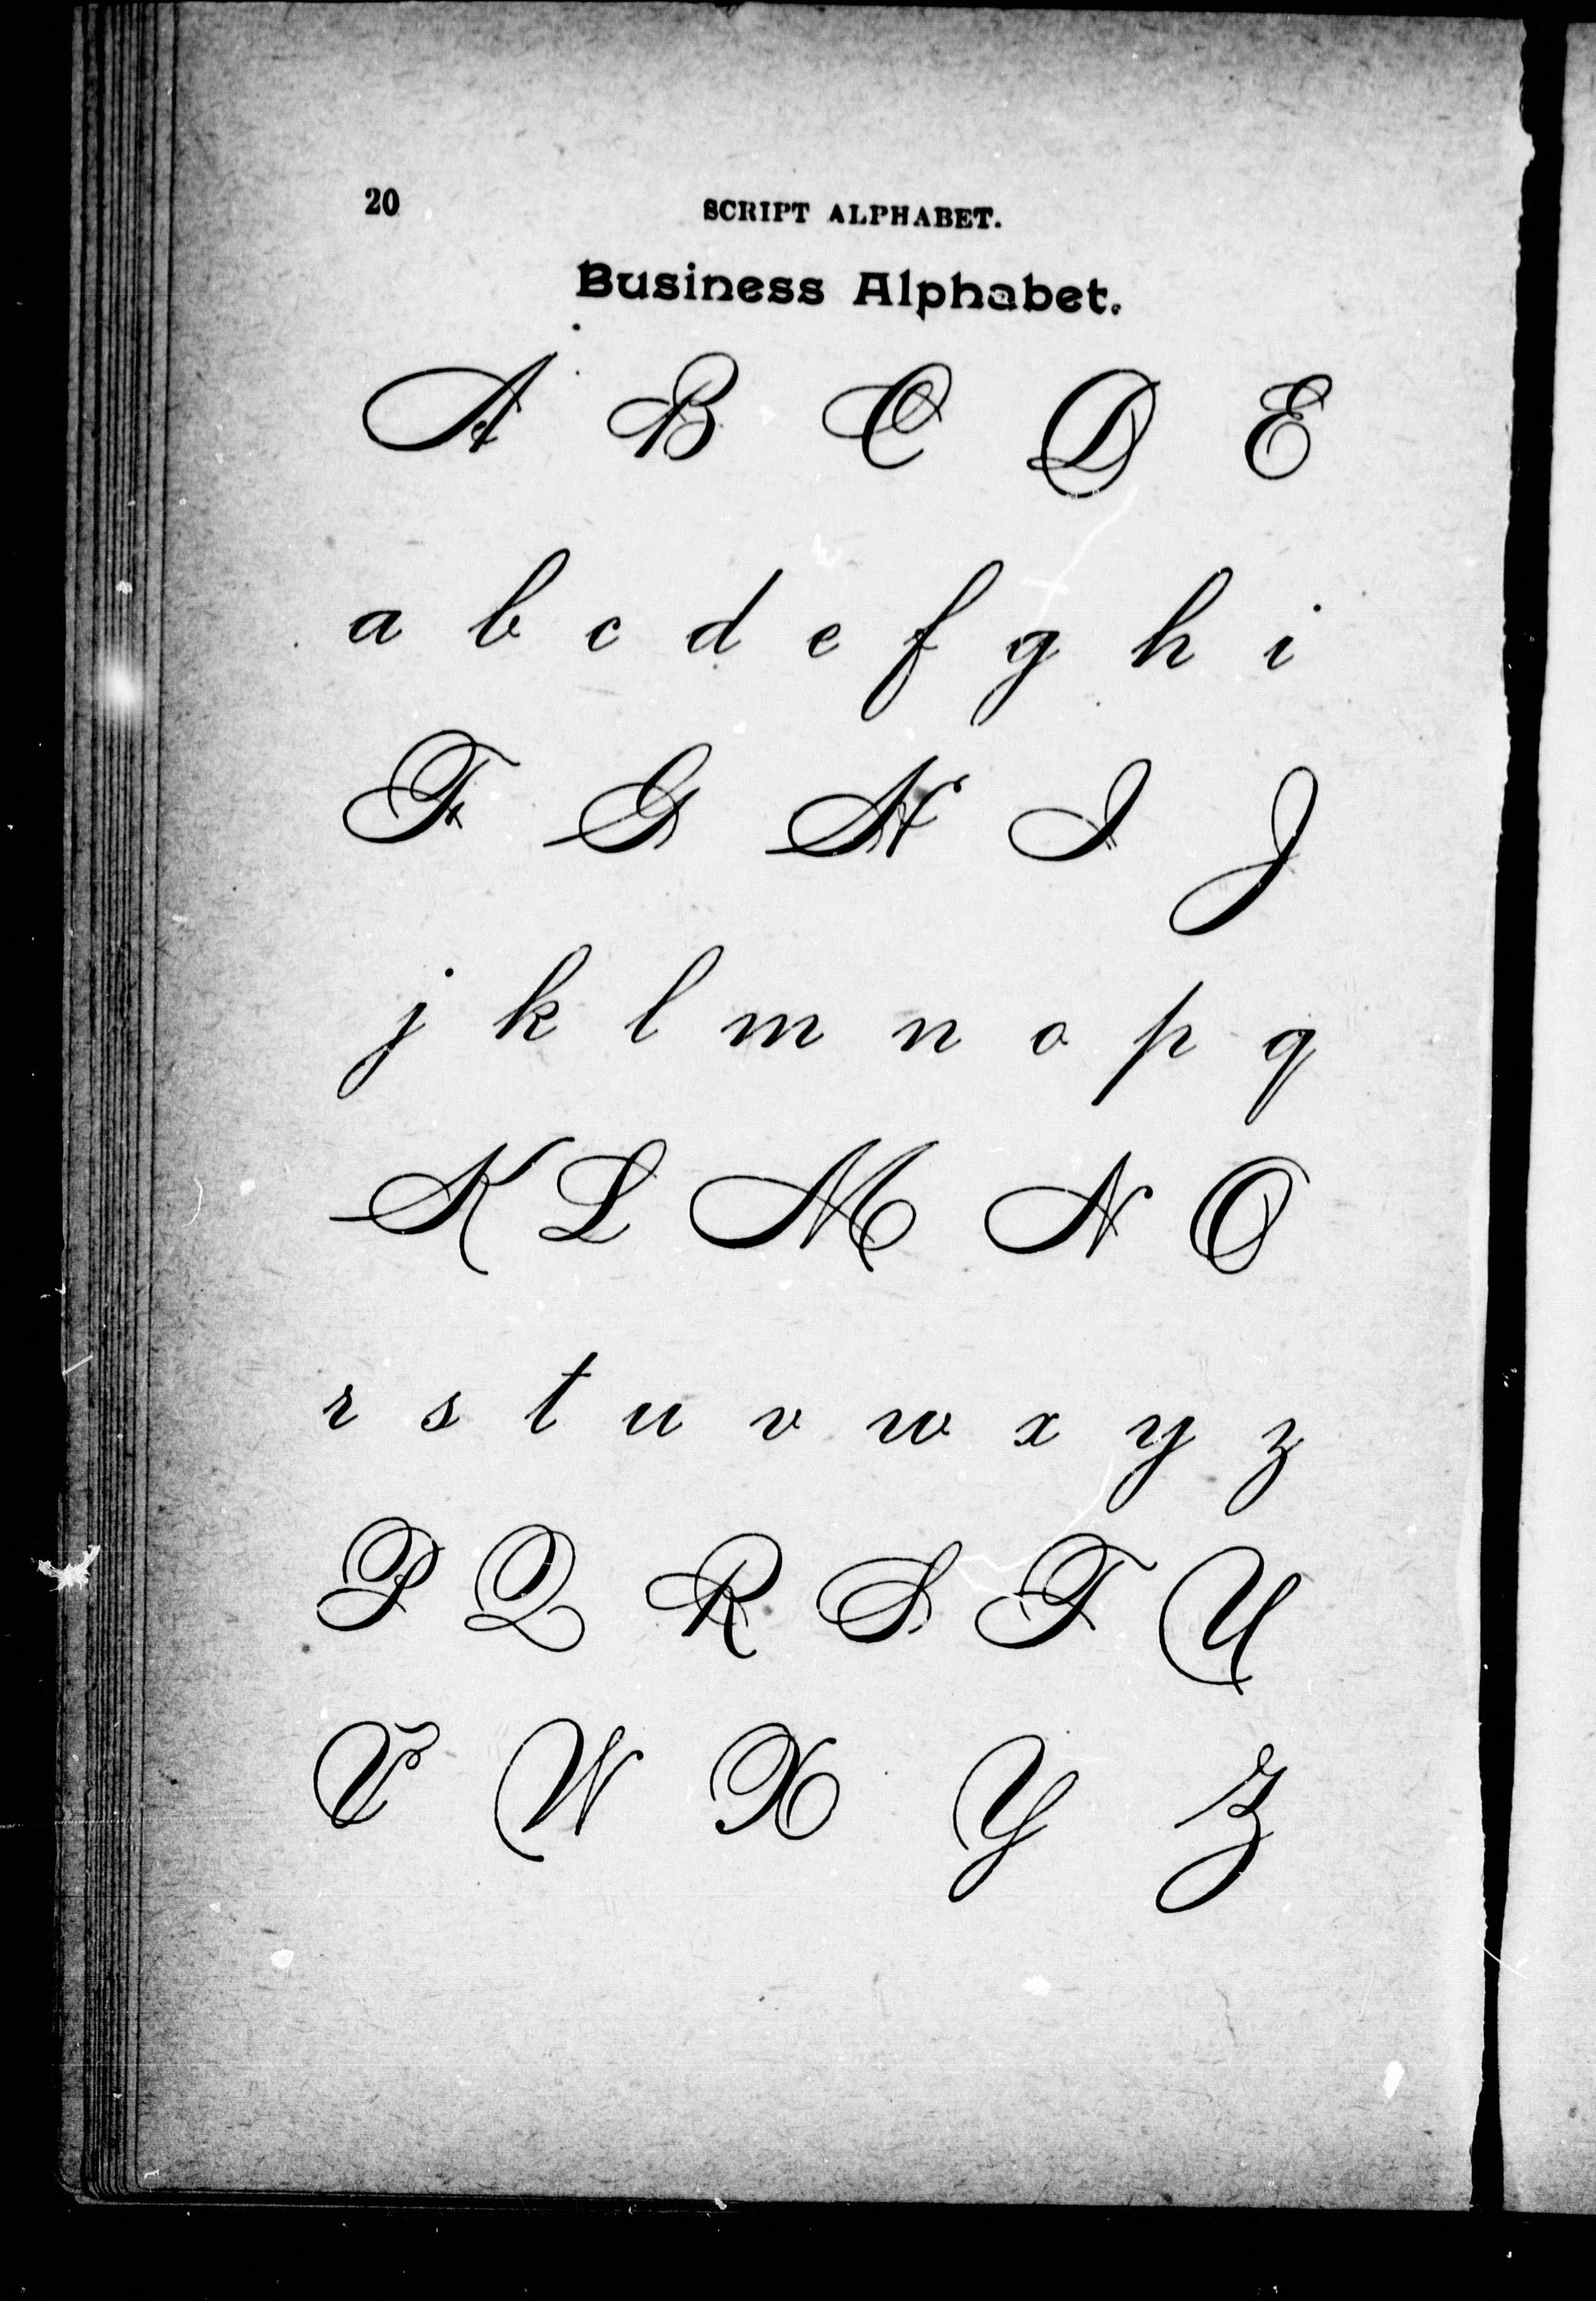 20 SCRIPT ALPHABET.
Business Alphabet.
A B C D E
a b c d e f g h i
F G H I J
j k l m n o p q
K L M N O
r s t u v w x y z
P Q R S T U
V W X Y Z